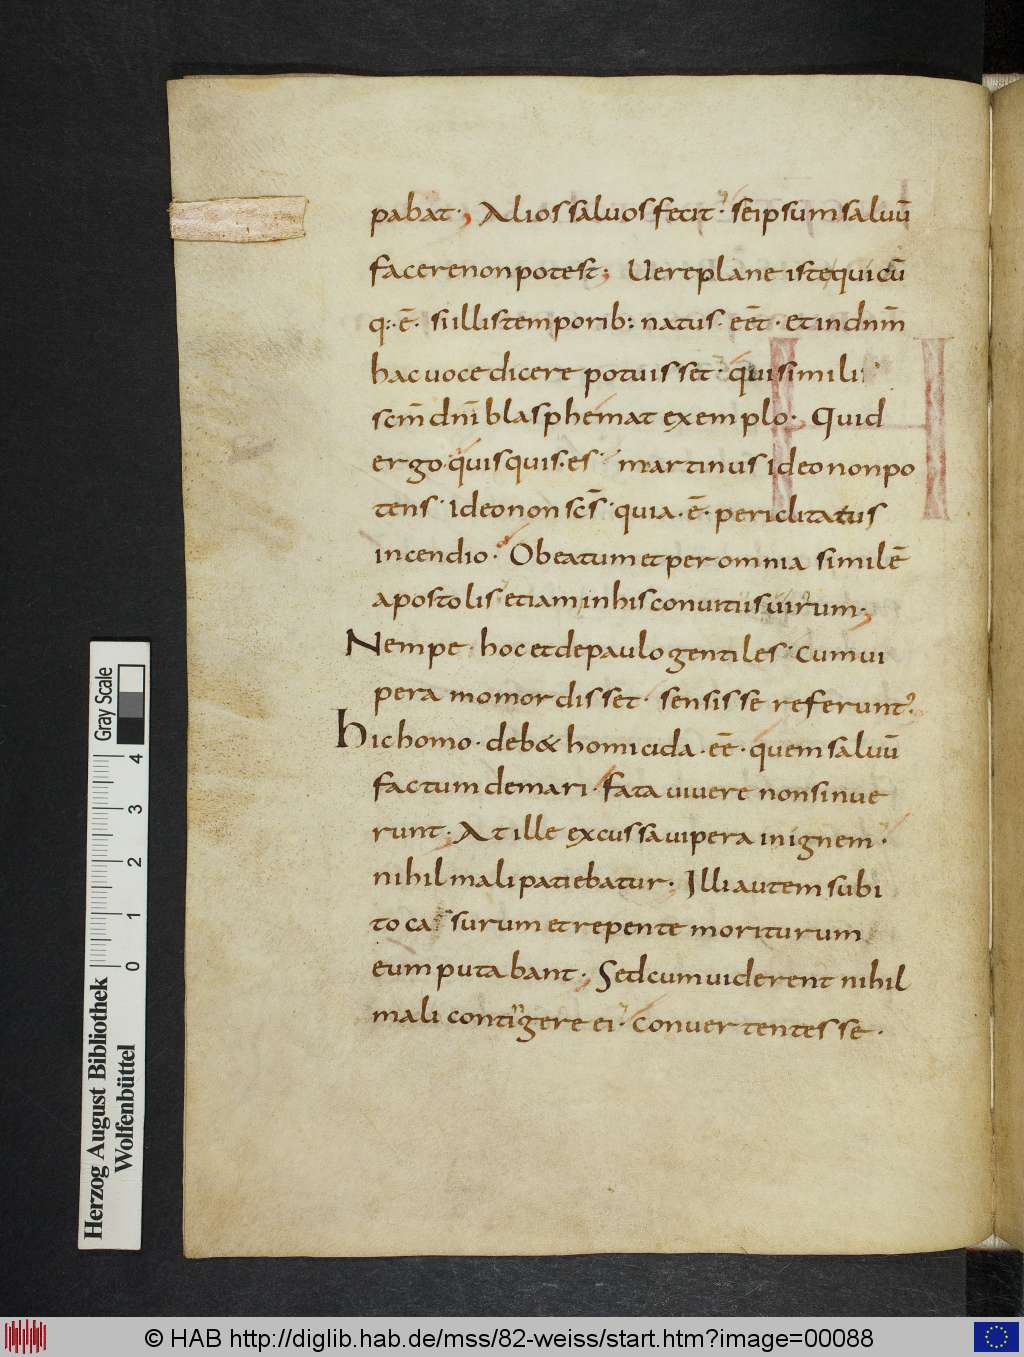 pabat·, Alios saluos fecit· seipsum saluū
facere non potest; Uere plane iste qui cū
q:·ē· si illis temporib: natus· eēt· et in dnm̄
hac uoce dicere potuisset· qui simili
scm̄ dnī blasphemat exemplo·, Quid
ergo quisquis·es· martinus ideo non po
tens· Ideo non scs̄· quia·ē· periclitatus
incendio· O beatum et per omnia similē
apostolis etiam in his conuitiis uirum·,
Nempe· hoc et de paulo gentiles· cum ui
pera momordisset· sensisse referunt?
hic homo· deb& homicida·eē· quem saluū
factum de mari· fata uiuere non sinue
runt·, At ille excussa uipera in ignem·
nihil mali patiebatur· Illi autem subi
to ca surum et repente moriturum
eum putabant·, Sed cum uiderent nihil
mali contigere ei· conuertentes se·
Gray Scale
4
3
2
1
0
Herzog August Bibliothek
Wolfenbüttel
© HAB http://diglib.hab.de/mss/82-weiss/start.htm?image=00088